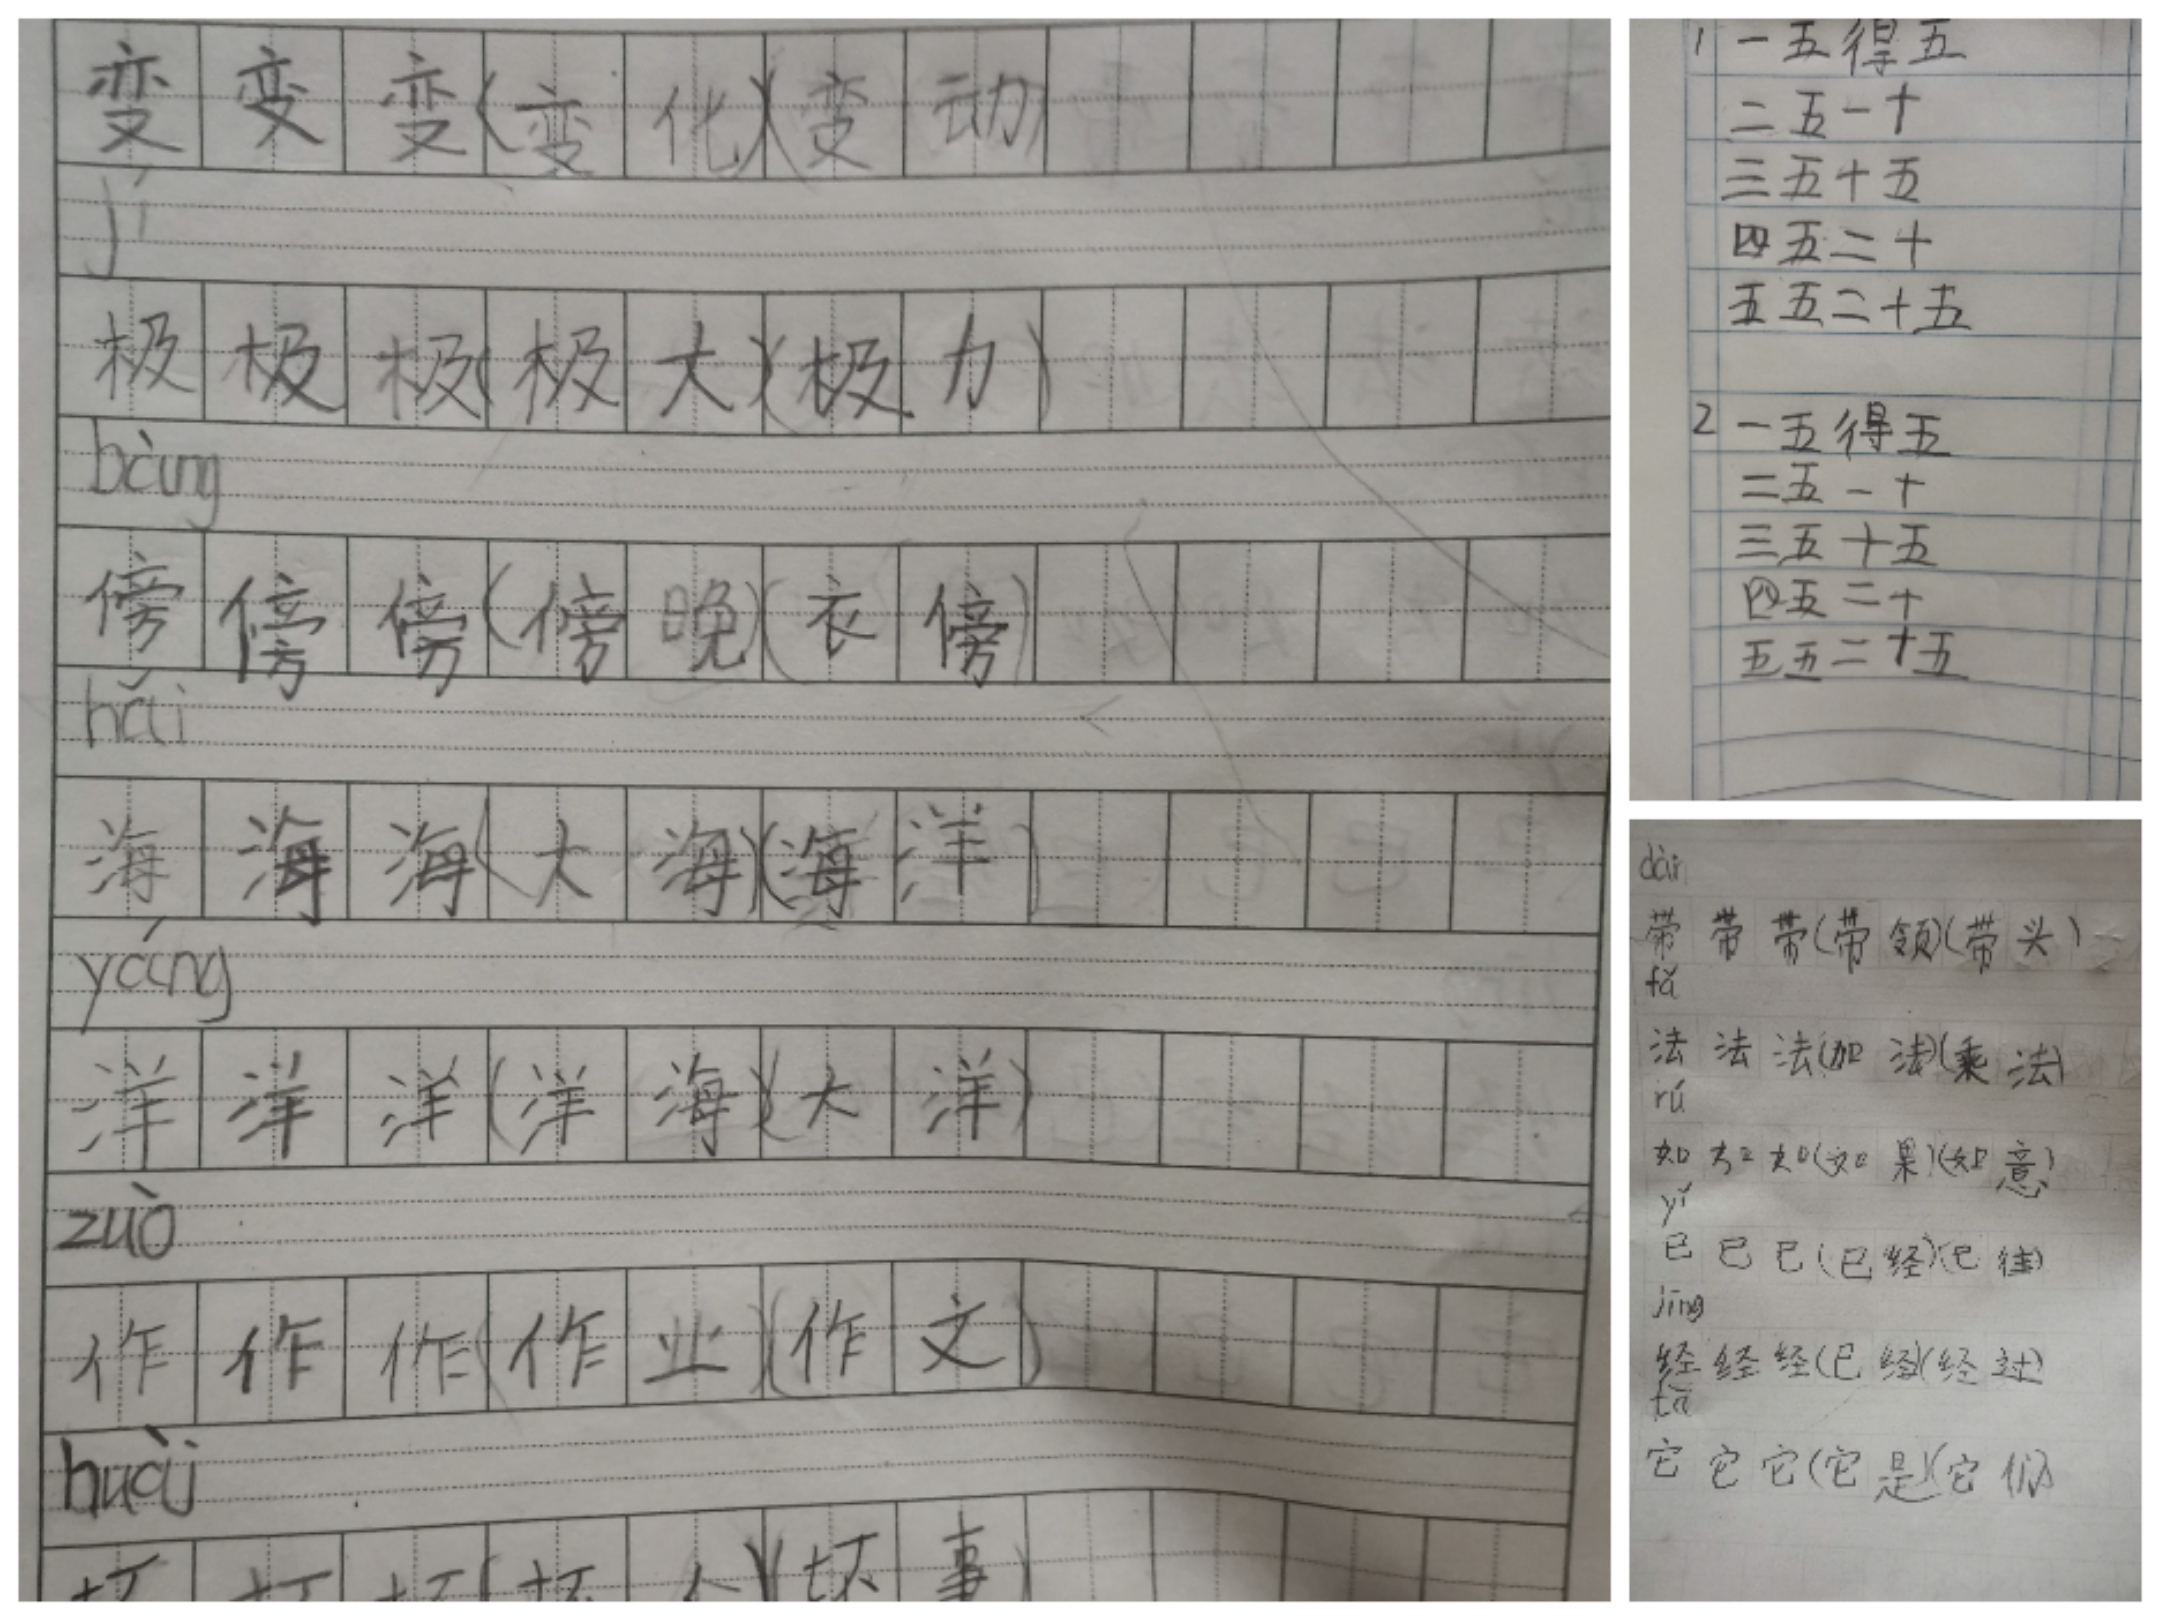 变 变 变(变 化)(变 动)
jí
极 极 极(极 大)(极 力)
bàng
傍 傍 傍(傍 晚)(衣 傍)
hǎi
海 海 海(大 海)(海 洋)
yáng
洋 洋 洋(洋 海)(大 洋)
zuò
作 作 作(作 业)(作 文)
huài
坏 坏 坏(坏 人)(坏 事)
1 一五得五
二五一十
三五十五
四五二十
五五二十五
2 一五得五
二五一十
三五十五
四五二十
五五二十五
dài
带 带 带(带 领)(带 头)
fǎ
法 法 法(加 法)(乘 法)
rú
如 如 如(如 果)(如 意)
yǐ
已 已 已(已 经)(已 往)
jīng
经 经 经(已 经)(经 过)
tā
它 它 它(它 是)(它 们)